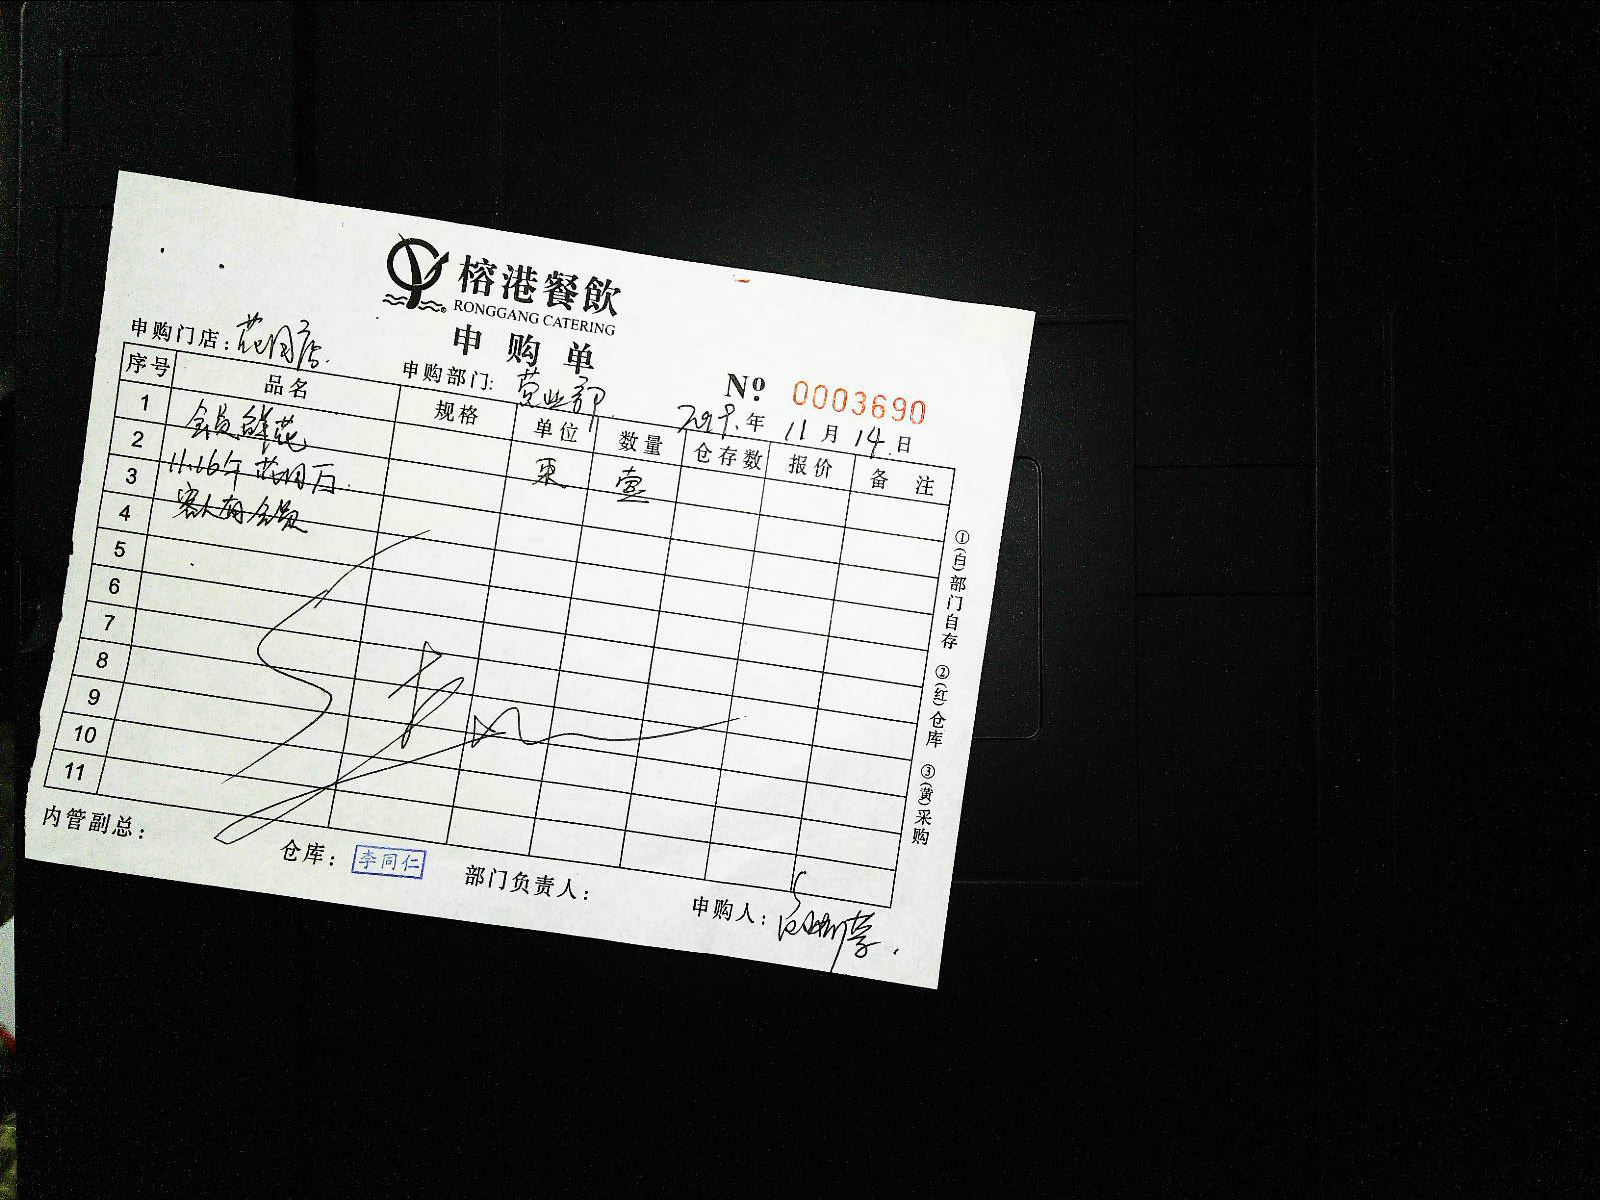 榕港餐飲
RONGGANG CATERING
申购单
申购门店:花园店
申购部门:营业部
№ 0003690
2019年 11月14日
序号 品名 规格 单位 数量 仓存数 报价 备 注
1 鲜花 束 壹
2 11.16午 花园厅
3 客人有
4
5
6
7
8
9
10
11
①(白)部门自存 ②(红)仓库 ③(黄)采购
内管副总: 仓库:李同仁 部门负责人: 申购人: